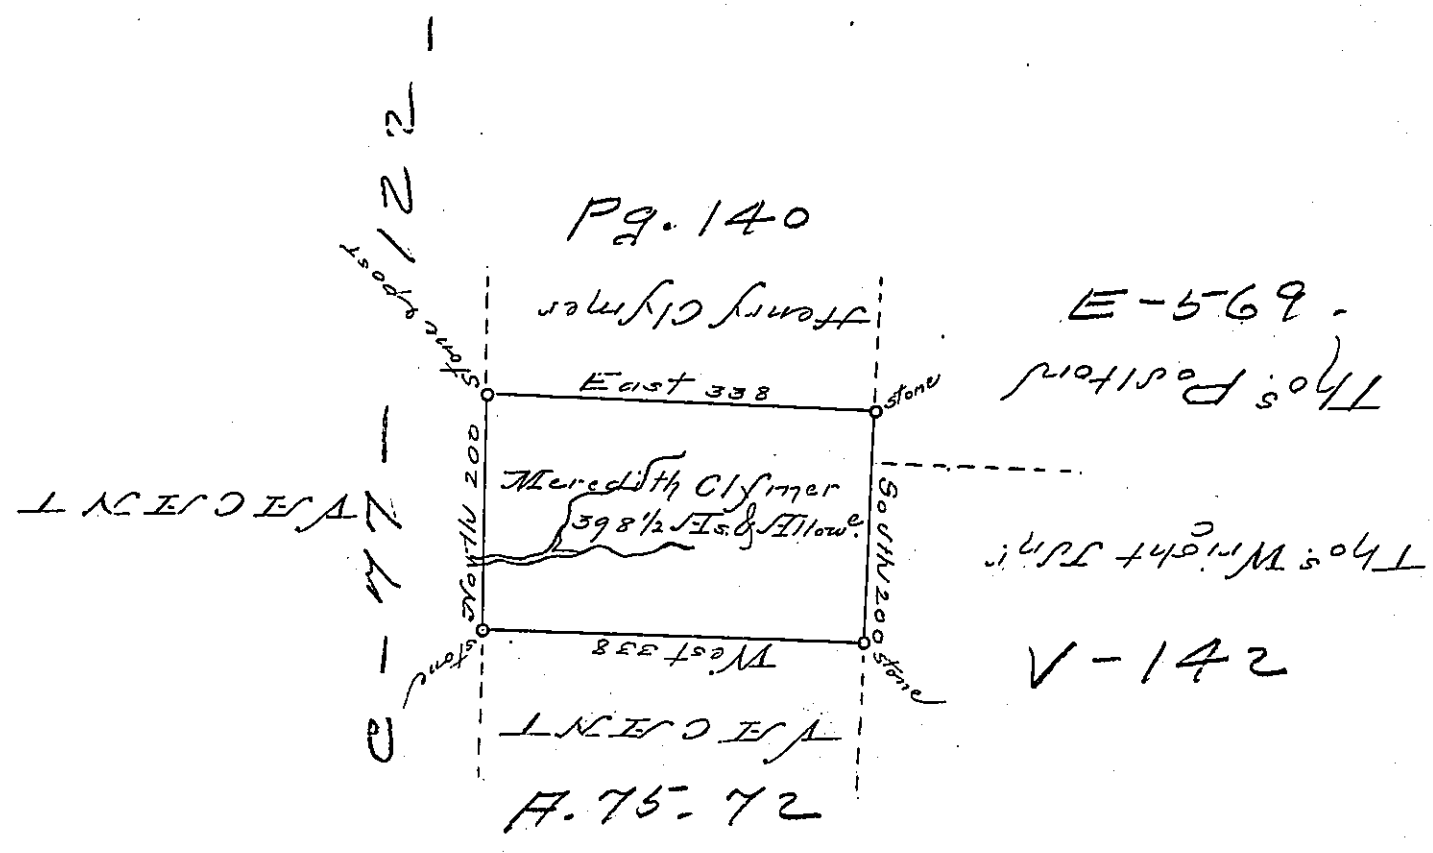 Pg. 140
Henry Clymer
E-569.
Thos. Poulton
stone & post
East 338
stone
North 200
Meredith Clymer
398 1/2 As. & Allowe.
South 200
VACANT
Thos. Wright Jun.
V-142
stone
West 338
stone
VACANT
A.75-72